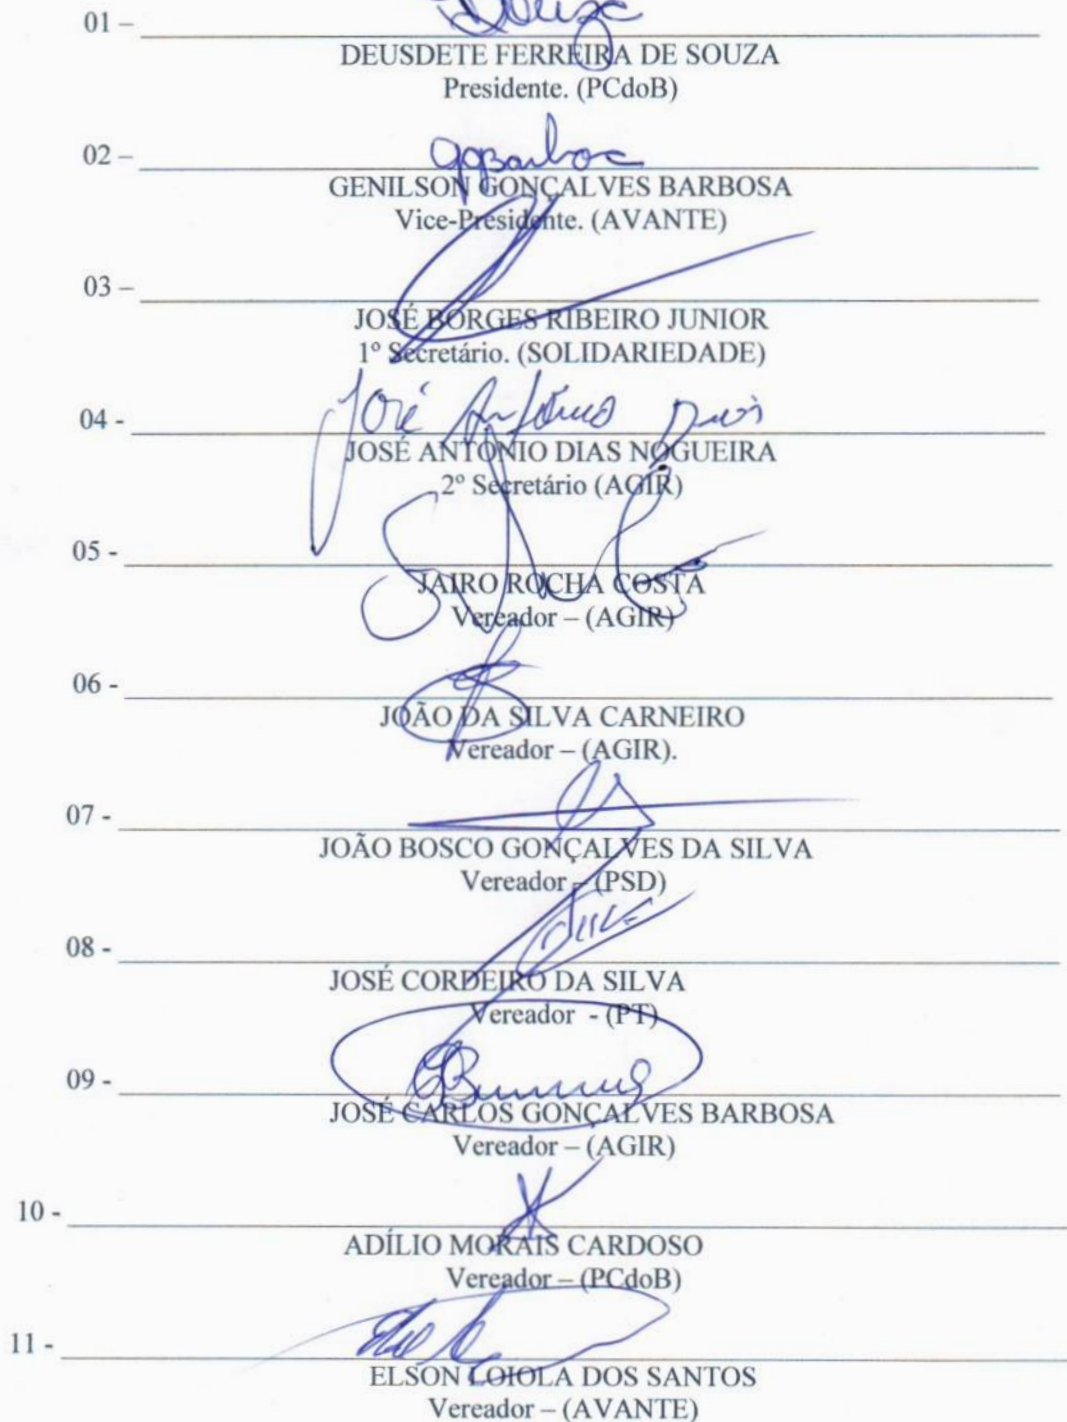 Souza
01 –
DEUSDETE FERREIRA DE SOUZA
Presidente. (PCdoB)
ggBarbosa
02 –
GENILSON GONÇALVES BARBOSA
Vice-Presidente. (AVANTE)
03 –
JOSÉ BORGES RIBEIRO JUNIOR
1º Secretário. (SOLIDARIEDADE)
José Antônio Dias
04 -
JOSÉ ANTONIO DIAS NOGUEIRA
2º Secretário (AGIR)
05 -
JAIRO ROCHA COSTA
Vereador – (AGIR)
06 -
JOÃO DA SILVA CARNEIRO
Vereador – (AGIR).
07 -
JOÃO BOSCO GONÇALVES DA SILVA
Vereador – (PSD)
08 -
JOSÉ CORDEIRO DA SILVA
Vereador - (PT)
09 -
JOSÉ CARLOS GONÇALVES BARBOSA
Vereador – (AGIR)
10 -
ADÍLIO MORAIS CARDOSO
Vereador – (PCdoB)
11 -
ELSON LOIOLA DOS SANTOS
Vereador – (AVANTE)